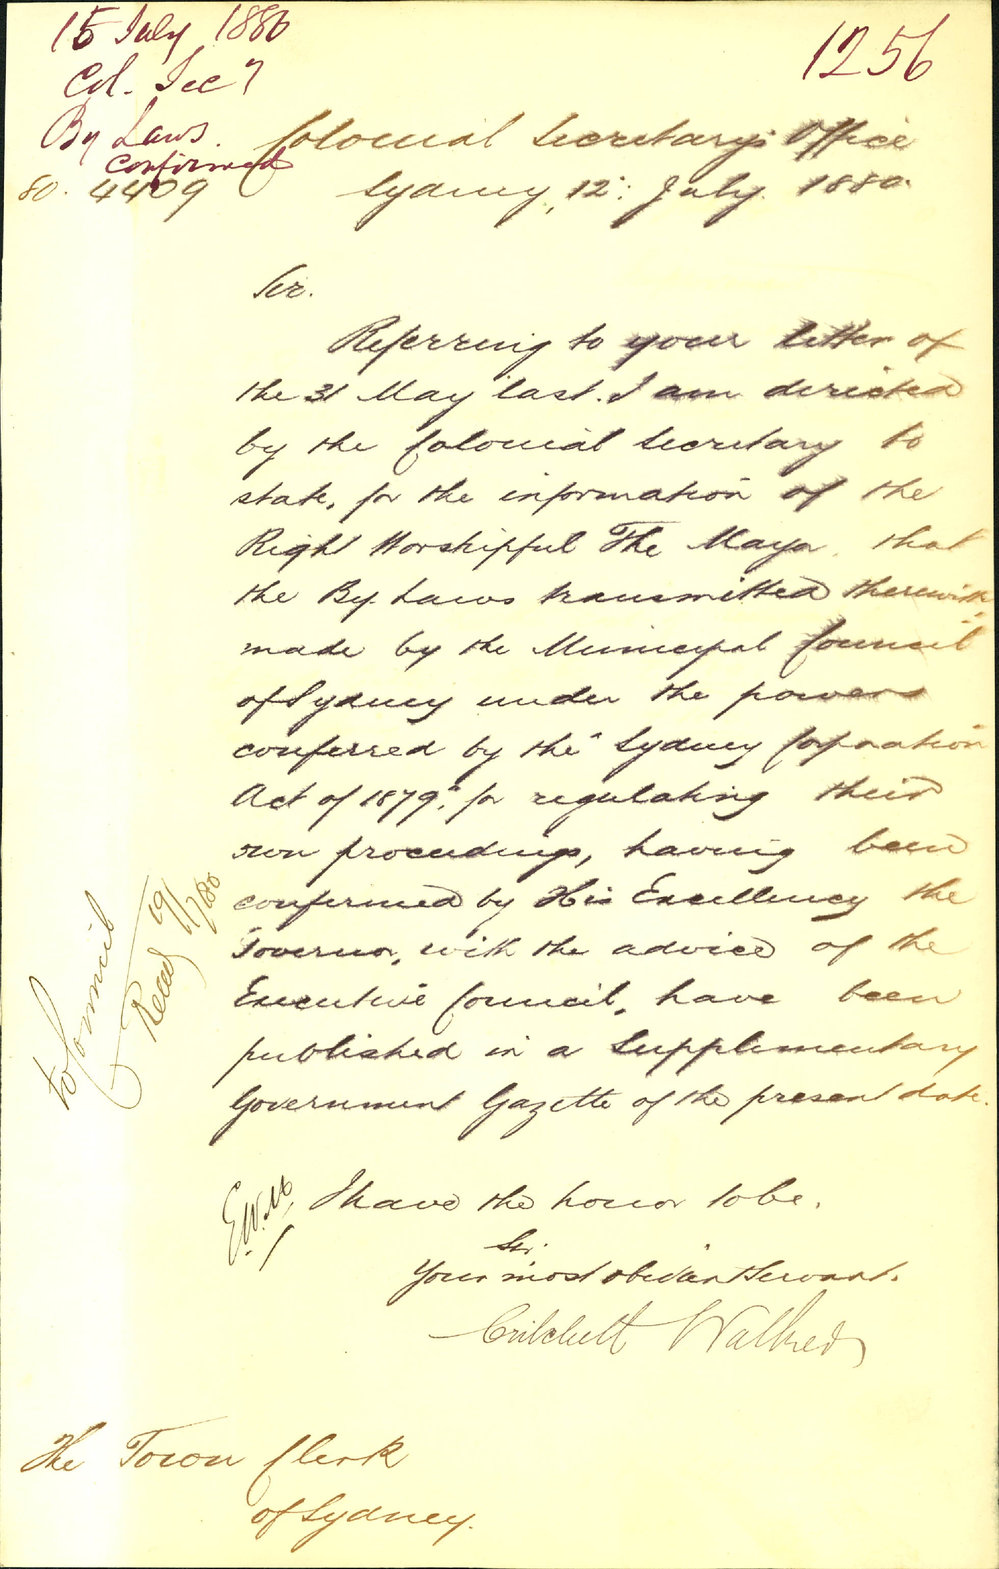 15 July 1880
1256
Col. Secy
By Laws.
confirmed
80. 4409
Colonial Secretary's Office
Sydney, 12: July. 1880.
Sir.
Referring to your letter of
the 31 May last. I am directed
by the Colonial Secretary to
state, for the information of the
Right Worshipful The Mayor. that
the By-Laws transmitted therewith,
made by the Municipal Council
of Sydney under the powers
conferred by the "Sydney Corporation
Act of 1879", for regulating their
own proceedings, having been
confirmed by His Excellency the
Governor, with the advice of the
Executive Council, have been
published in a Supplementary
Government Gazette of the present date.
To Council
Read 19/7/80
E.W.M.
I have the honor to be.
Sir.
Your most obedient Servant.
Critchett Walker
The Town Clerk
of Sydney.